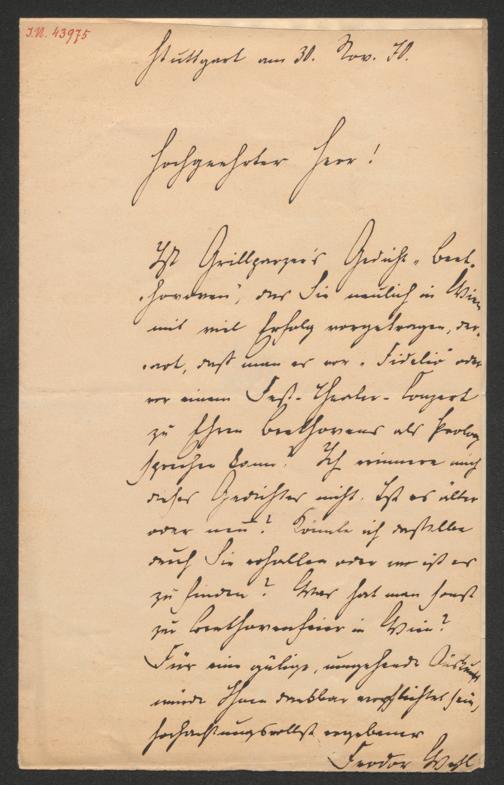 I.N. 43975
Stuttgart am 30. Nov. 70.
Hochgeehrter Herr!
Ist Grillparzer's Gedicht „Beet-
hoven“, das Sie neulich in Wien
mit viel Erfolg vorgetragen, der-
art, daß man es vor „Fidelio“ oder
vor einem Fest-Theater-Konzert
zu Ehren Beethovens als Prolog
sprechen kann? Ich erinnere mich
dieses Gedichtes nicht. Ist es älter
oder neu? Könnte ich dasselbe
durch Sie erhalten oder wo ist es
zu finden? Was hat man sonst
zur Beethovenfeier in Wien?
Für eine gütige, umgehende Auskunft
würde Ihnen dankbar verpflichtet sein,
hochachtungsvollst ergebener
Feodor Wehl